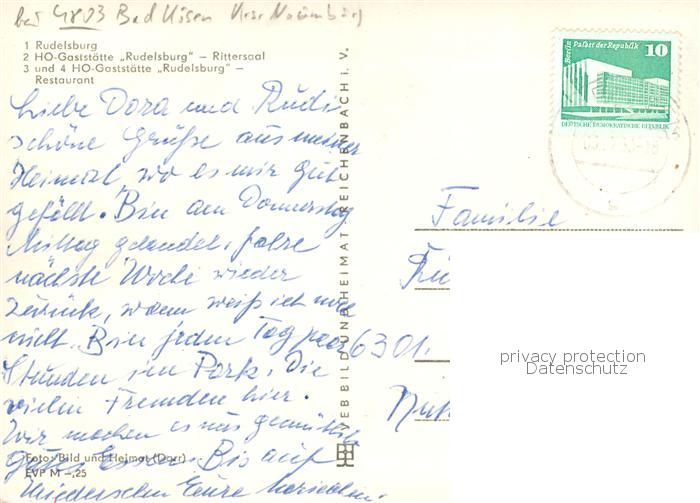 bei 4803 Bad Kösen Kreis Naumburg
1 Rudelsburg
2 HO-Gaststätte „Rudelsburg" – Rittersaal
3 und 4 HO-Gaststätte „Rudelsburg" –
Restaurant
Liebe Dora und Rudi
schöne Grüße aus meiner
Heimat, wo es mir gut
gefällt. Bin am Donnerstag
Mittag gelandet, fahre
nächste Woche wieder
zurück, wann weiß ich noch
nicht. Bin jeden Tag paar
Stunden im Park. Die
vielen Fremden hier.
Wir machen es uns gemütlich
gutes Essen. Bis auf
Wiedersehen Eure
Foto: Bild und Heimat (Darr)
EVP M –,25
VEB BILD UND HEIMAT REICHENBACH i. V.
Berlin Palast der Republik 10
DEUTSCHE DEMOKRATISCHE REPUBLIK
Familie
6301
privacy protection
Datenschutz